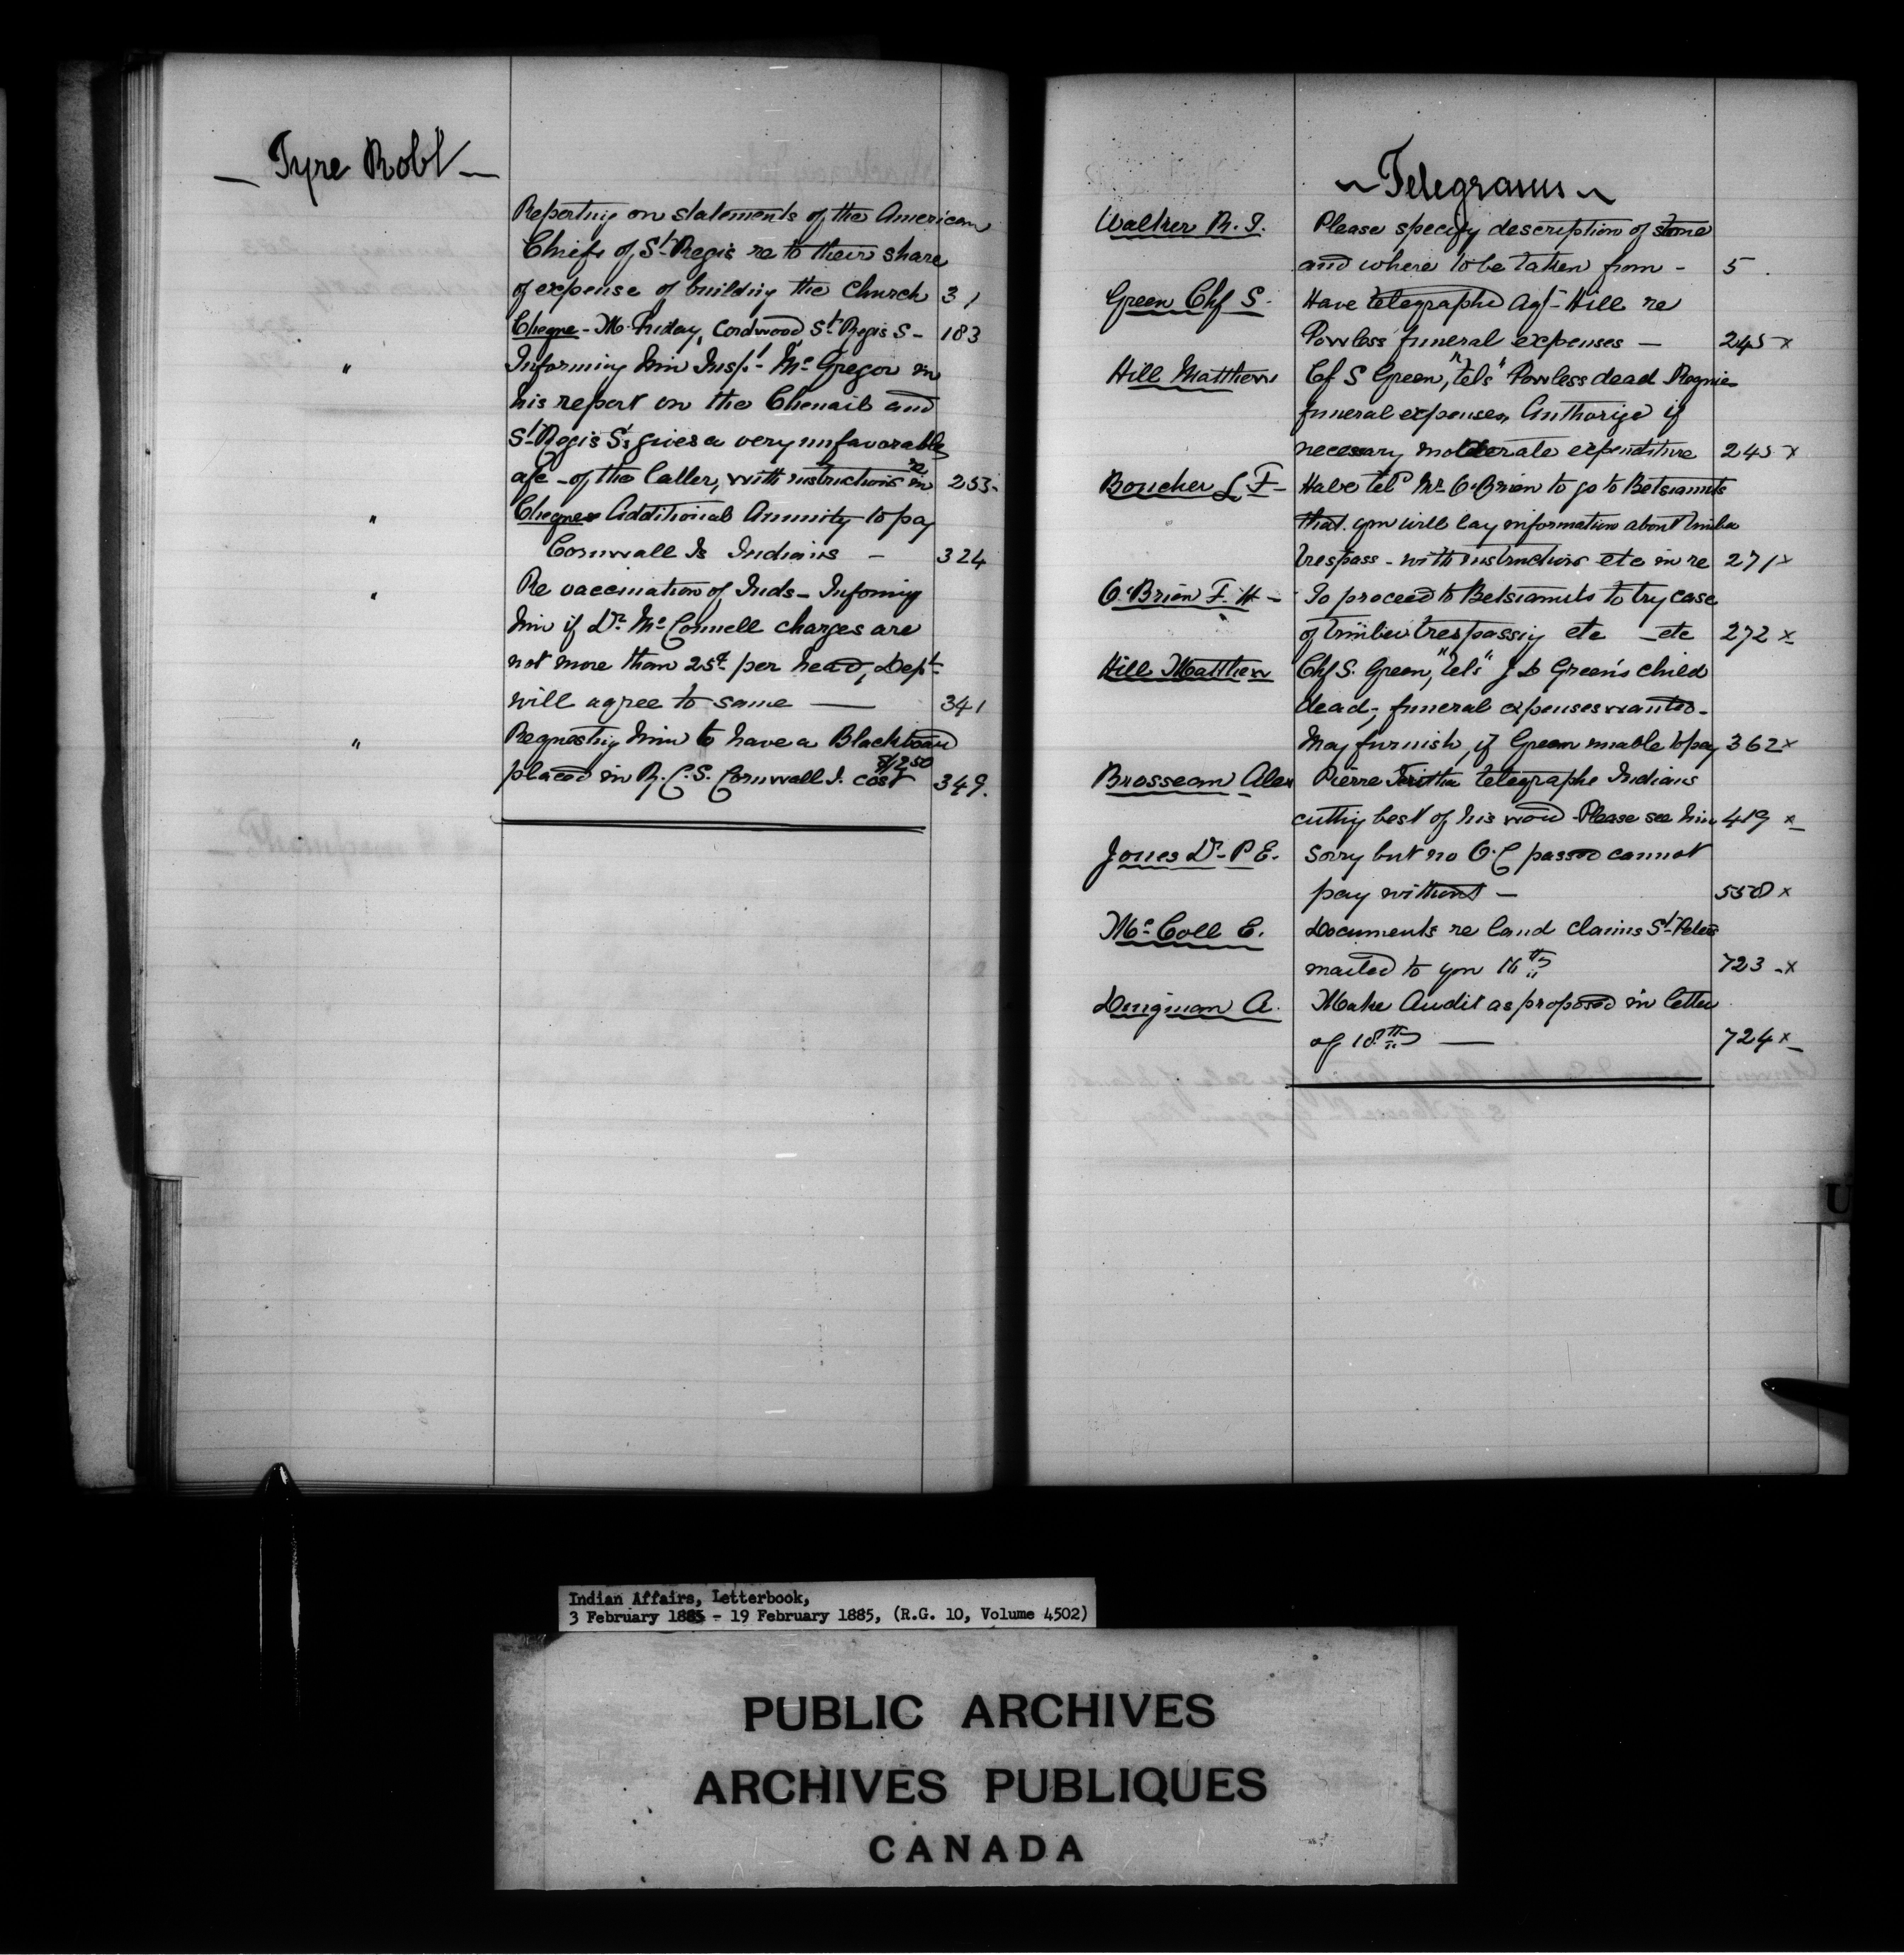 — Tyre Robt —
Reporting on statements of the American
Chiefs of St Regis re to their share
of expense of building the Church 31
Cheque - M. Friday, Cordwood St Regis S - 183
" Informing him Insp! Mc Gregor in
his report on the Chenail and
St Regis Ss gives a very unfavorable
a/c - of the latter, with instructions in re 253
" Cheques Additional Annuity to pay
Cornwall Is Indians - 324
" Re vaccination of Inds - Informing
him if Dr. Mc Connell charges are
not more than 25c per head, Dept
will agree to same — 341
" Requesting him to have a Blackboard
placed in R. C. S. Cornwall I. cost $/2.50 349.
~ Telegrams ~
Walker R. J. Please specify description of stone
and where to be taken from - 5.
Green Chf S. Have telegraphd Agt Hill re
Powless funeral expenses — 245 x
Hill Matthew Cf S Green, "tel's" Powless dead Requires
funeral expenses, Authorize if
necessary moderate expenditure 245 x
Boucher L F - Have teld Mr. O.Brien to go to Betsiamits
that you will lay information about timber
trespass - with instructions etc in re 271 x
O.Brien F. H - To proceed to Betsiamits to try case
of timber trespassing etc - etc 272 x
Hill Matthew Chf S. Green, "tel's" J D Green's child
dead, funeral expenses wanted.
May furnish, if Green unable to pay 362 x
Brosseau Alex Pierre telegraphs Indians
cutting best of his wood - Please see him 419 x
Jones Dr. P E. Sorry but no O. C passed cannot
pay without - 550 x
Mc Coll E. Documents re land claims St Peters
mailed to you 16th 723 - x
Dingman A. Make Audit as proposed in letter
of 18th — 724 x
U
Indian Affairs, Letterbook,
3 February 1885 - 19 February 1885, (R.G. 10, Volume 4502)
PUBLIC ARCHIVES
ARCHIVES PUBLIQUES
CANADA